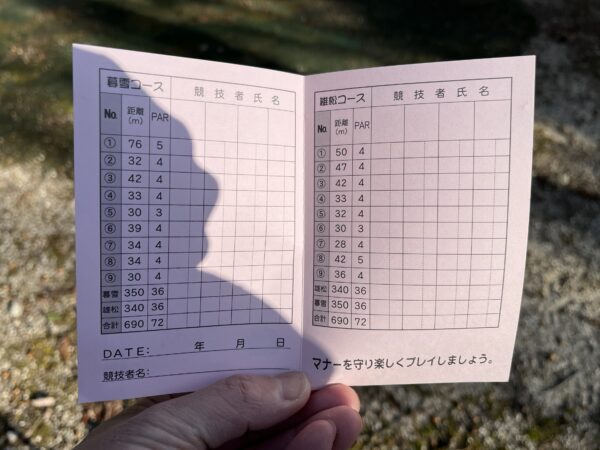 暮雪コース 競技者氏名
No. 距離(m) PAR
① 76 5
② 32 4
③ 42 4
④ 33 4
⑤ 30 3
⑥ 39 4
⑦ 34 4
⑧ 34 4
⑨ 30 4
暮雪 350 36
雄松 340 36
合計 690 72
DATE: 年 月 日
競技者名:
雄松コース 競技者氏名
No. 距離(m) PAR
① 50 4
② 47 4
③ 42 4
④ 33 4
⑤ 32 4
⑥ 30 3
⑦ 28 4
⑧ 42 5
⑨ 36 4
雄松 340 36
暮雪 350 36
合計 690 72
マナーを守り楽しくプレイしましょう。